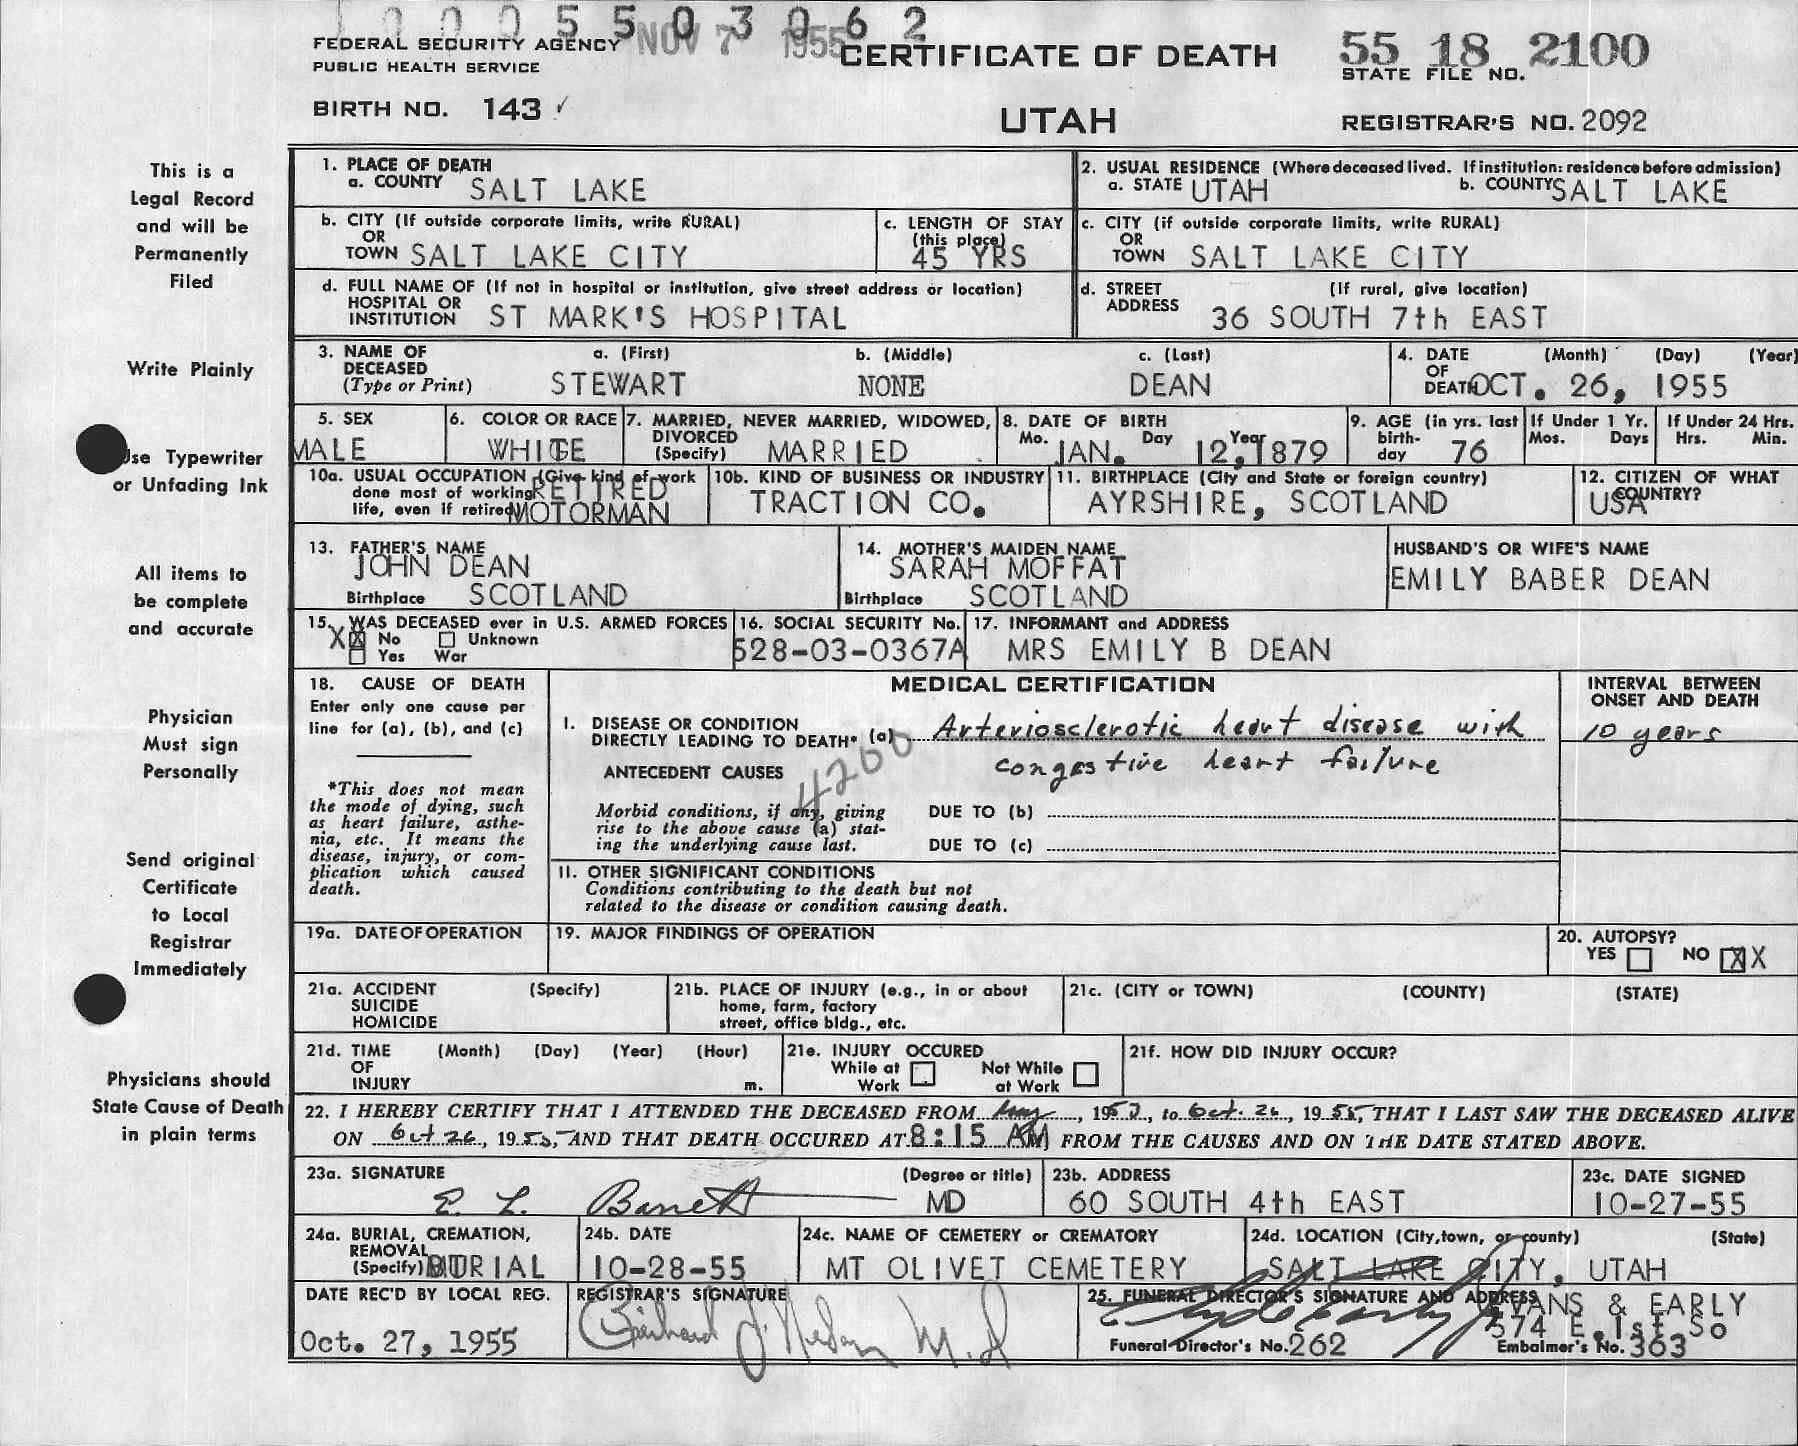 1 0 0 0 5 5 0 3 0 6 2
NOV 7 1955
FEDERAL SECURITY AGENCY
PUBLIC HEALTH SERVICE
CERTIFICATE OF DEATH
55 18 2100
STATE FILE NO.
BIRTH NO. 143
UTAH
REGISTRAR'S NO. 2092
This is a
Legal Record
and will be
Permanently
Filed
Write Plainly
Use Typewriter
or Unfading Ink
All items to
be complete
and accurate
Physician
Must sign
Personally
Send original
Certificate
to Local
Registrar
Immediately
Physicians should
State Cause of Death
in plain terms
1. PLACE OF DEATH
a. COUNTY SALT LAKE
2. USUAL RESIDENCE (Where deceased lived. If institution: residence before admission)
a. STATE UTAH b. COUNTY SALT LAKE
b. CITY (If outside corporate limits, write RURAL)
OR
TOWN SALT LAKE CITY
c. LENGTH OF STAY
(this place)
45 YRS
c. CITY (if outside corporate limits, write RURAL)
OR
TOWN SALT LAKE CITY
d. FULL NAME OF (If not in hospital or institution, give street address or location)
HOSPITAL OR
INSTITUTION ST MARK'S HOSPITAL
d. STREET (If rural, give location)
ADDRESS
36 SOUTH 7th EAST
3. NAME OF
DECEASED
(Type or Print)
a. (First)
STEWART
b. (Middle)
NONE
c. (Last)
DEAN
4. DATE (Month) (Day) (Year)
OF
DEATH OCT. 26, 1955
5. SEX
MALE
6. COLOR OR RACE
WHITE
7. MARRIED, NEVER MARRIED, WIDOWED,
DIVORCED
(Specify) MARRIED
8. DATE OF BIRTH
Mo. Day Year
JAN. 12, 1879
9. AGE (in yrs. last
birth-
day 76
If Under 1 Yr.
Mos. Days
If Under 24 Hrs.
Hrs. Min.
10a. USUAL OCCUPATION (Give kind of work
done most of working
life, even if retired
RETIRED
MOTORMAN
10b. KIND OF BUSINESS OR INDUSTRY
TRACTION CO.
11. BIRTHPLACE (City and State or foreign country)
AYRSHIRE, SCOTLAND
12. CITIZEN OF WHAT
COUNTRY?
USA
13. FATHER'S NAME
JOHN DEAN
Birthplace SCOTLAND
14. MOTHER'S MAIDEN NAME
SARAH MOFFAT
Birthplace SCOTLAND
HUSBAND'S OR WIFE'S NAME
EMILY BABER DEAN
15. WAS DECEASED ever in U.S. ARMED FORCES
XX No Unknown
Yes War
16. SOCIAL SECURITY No.
528-03-0367A
17. INFORMANT and ADDRESS
MRS EMILY B DEAN
18. CAUSE OF DEATH
Enter only one cause per
line for (a), (b), and (c)
*This does not mean
the mode of dying, such
as heart failure, asthe-
nia, etc. It means the
disease, injury, or com-
plication which caused
death.
MEDICAL CERTIFICATION
INTERVAL BETWEEN
ONSET AND DEATH
I. DISEASE OR CONDITION
DIRECTLY LEADING TO DEATH* (a) Arteriosclerotic heart disease with
congestive heart failure
10 years
4200
ANTECEDENT CAUSES
Morbid conditions, if any, giving
rise to the above cause (a) stat-
ing the underlying cause last.
DUE TO (b)
DUE TO (c)
II. OTHER SIGNIFICANT CONDITIONS
Conditions contributing to the death but not
related to the disease or condition causing death.
19a. DATE OF OPERATION
19. MAJOR FINDINGS OF OPERATION
20. AUTOPSY?
YES NO XX
21a. ACCIDENT (Specify)
SUICIDE
HOMICIDE
21b. PLACE OF INJURY (e.g., in or about
home, farm, factory
street, office bldg., etc.
21c. (CITY or TOWN) (COUNTY) (STATE)
21d. TIME (Month) (Day) (Year) (Hour)
OF
INJURY m.
21e. INJURY OCCURED
While at Not While
Work at Work
21f. HOW DID INJURY OCCUR?
22. I HEREBY CERTIFY THAT I ATTENDED THE DECEASED FROM , 195 , to Oct. 26, 1955, THAT I LAST SAW THE DECEASED ALIVE
ON Oct 26, 1955, AND THAT DEATH OCCURED AT 8:15 AM FROM THE CAUSES AND ON THE DATE STATED ABOVE.
23a. SIGNATURE (Degree or title)
E. L. Barrett MD
23b. ADDRESS
60 SOUTH 4th EAST
23c. DATE SIGNED
10-27-55
24a. BURIAL, CREMATION,
REMOVAL
(Specify) BURIAL
24b. DATE
10-28-55
24c. NAME OF CEMETERY or CREMATORY
MT OLIVET CEMETERY
24d. LOCATION (City, town, or county) (State)
SALT LAKE CITY, UTAH
DATE REC'D BY LOCAL REG.
Oct. 27, 1955
REGISTRAR'S SIGNATURE
M.D
25. FUNERAL DIRECTOR'S SIGNATURE AND ADDRESS
EVANS & EARLY
574 E. 1st So
Funeral Director's No. 262
Embalmer's No. 363